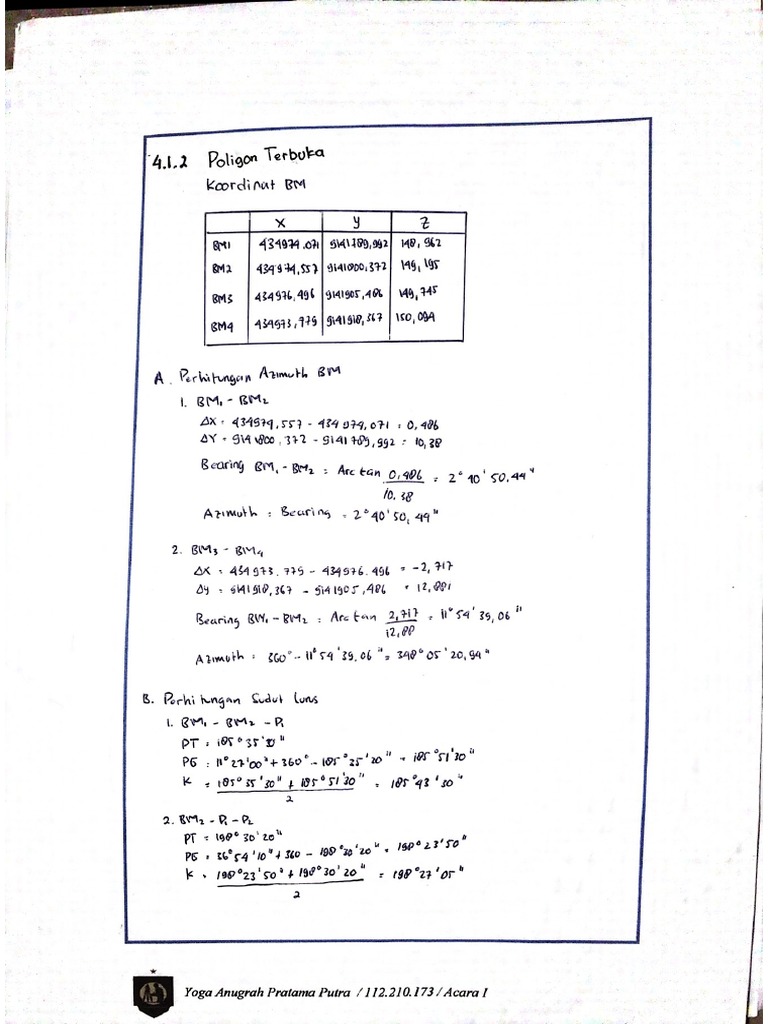 4.1.2 Poligon Terbuka
Koordinat BM
X Y Z
BM1 434974.071 9141789,992 148,962
BM2 434974,557 9141800,372 149,195
BM3 434976,496 9141905,486 149,745
BM4 434973,779 9141918,367 150,094
A. Perhitungan Azimuth BM
1. BM₁ - BM₂
ΔX = 434974,557 - 434974,071 = 0,486
ΔY = 9141800,372 - 9141789,992 = 10,38
Bearing BM₁ - BM₂ = Arc tan 0,486 / 10.38 = 2° 40' 50.44"
Azimuth = Bearing = 2° 40' 50,44"
2. BM₃ - BM₄
ΔX = 434973.779 - 434976.496 = -2,717
Δy = 9141918,367 - 9141905,486 = 12,881
Bearing BM₁ - BM₂ = Arc tan 2,717 / 12,88 = 11° 54' 39,06"
Azimuth = 360° - 11° 54' 39,06" = 348° 05' 20,94"
B. Perhitungan Sudut Luns
1. BM₁ - BM₂ - P₁
PT = 185° 35' 30"
PG = 11° 27' 00" + 360° - 185° 35' 30" = 185° 51' 30"
K = 185° 35' 30" + 185° 51' 30" / 2 = 185° 43' 30"
2. BM₂ - P₁ - P₂
PT = 198° 30' 20"
PG = 36° 54' 10" + 360 - 198° 30' 20" = 198° 23' 50"
K = 198° 23' 50" + 198° 30' 20" / 2 = 198° 27' 05"
Yoga Anugrah Pratama Putra / 112.210.173 / Acara I